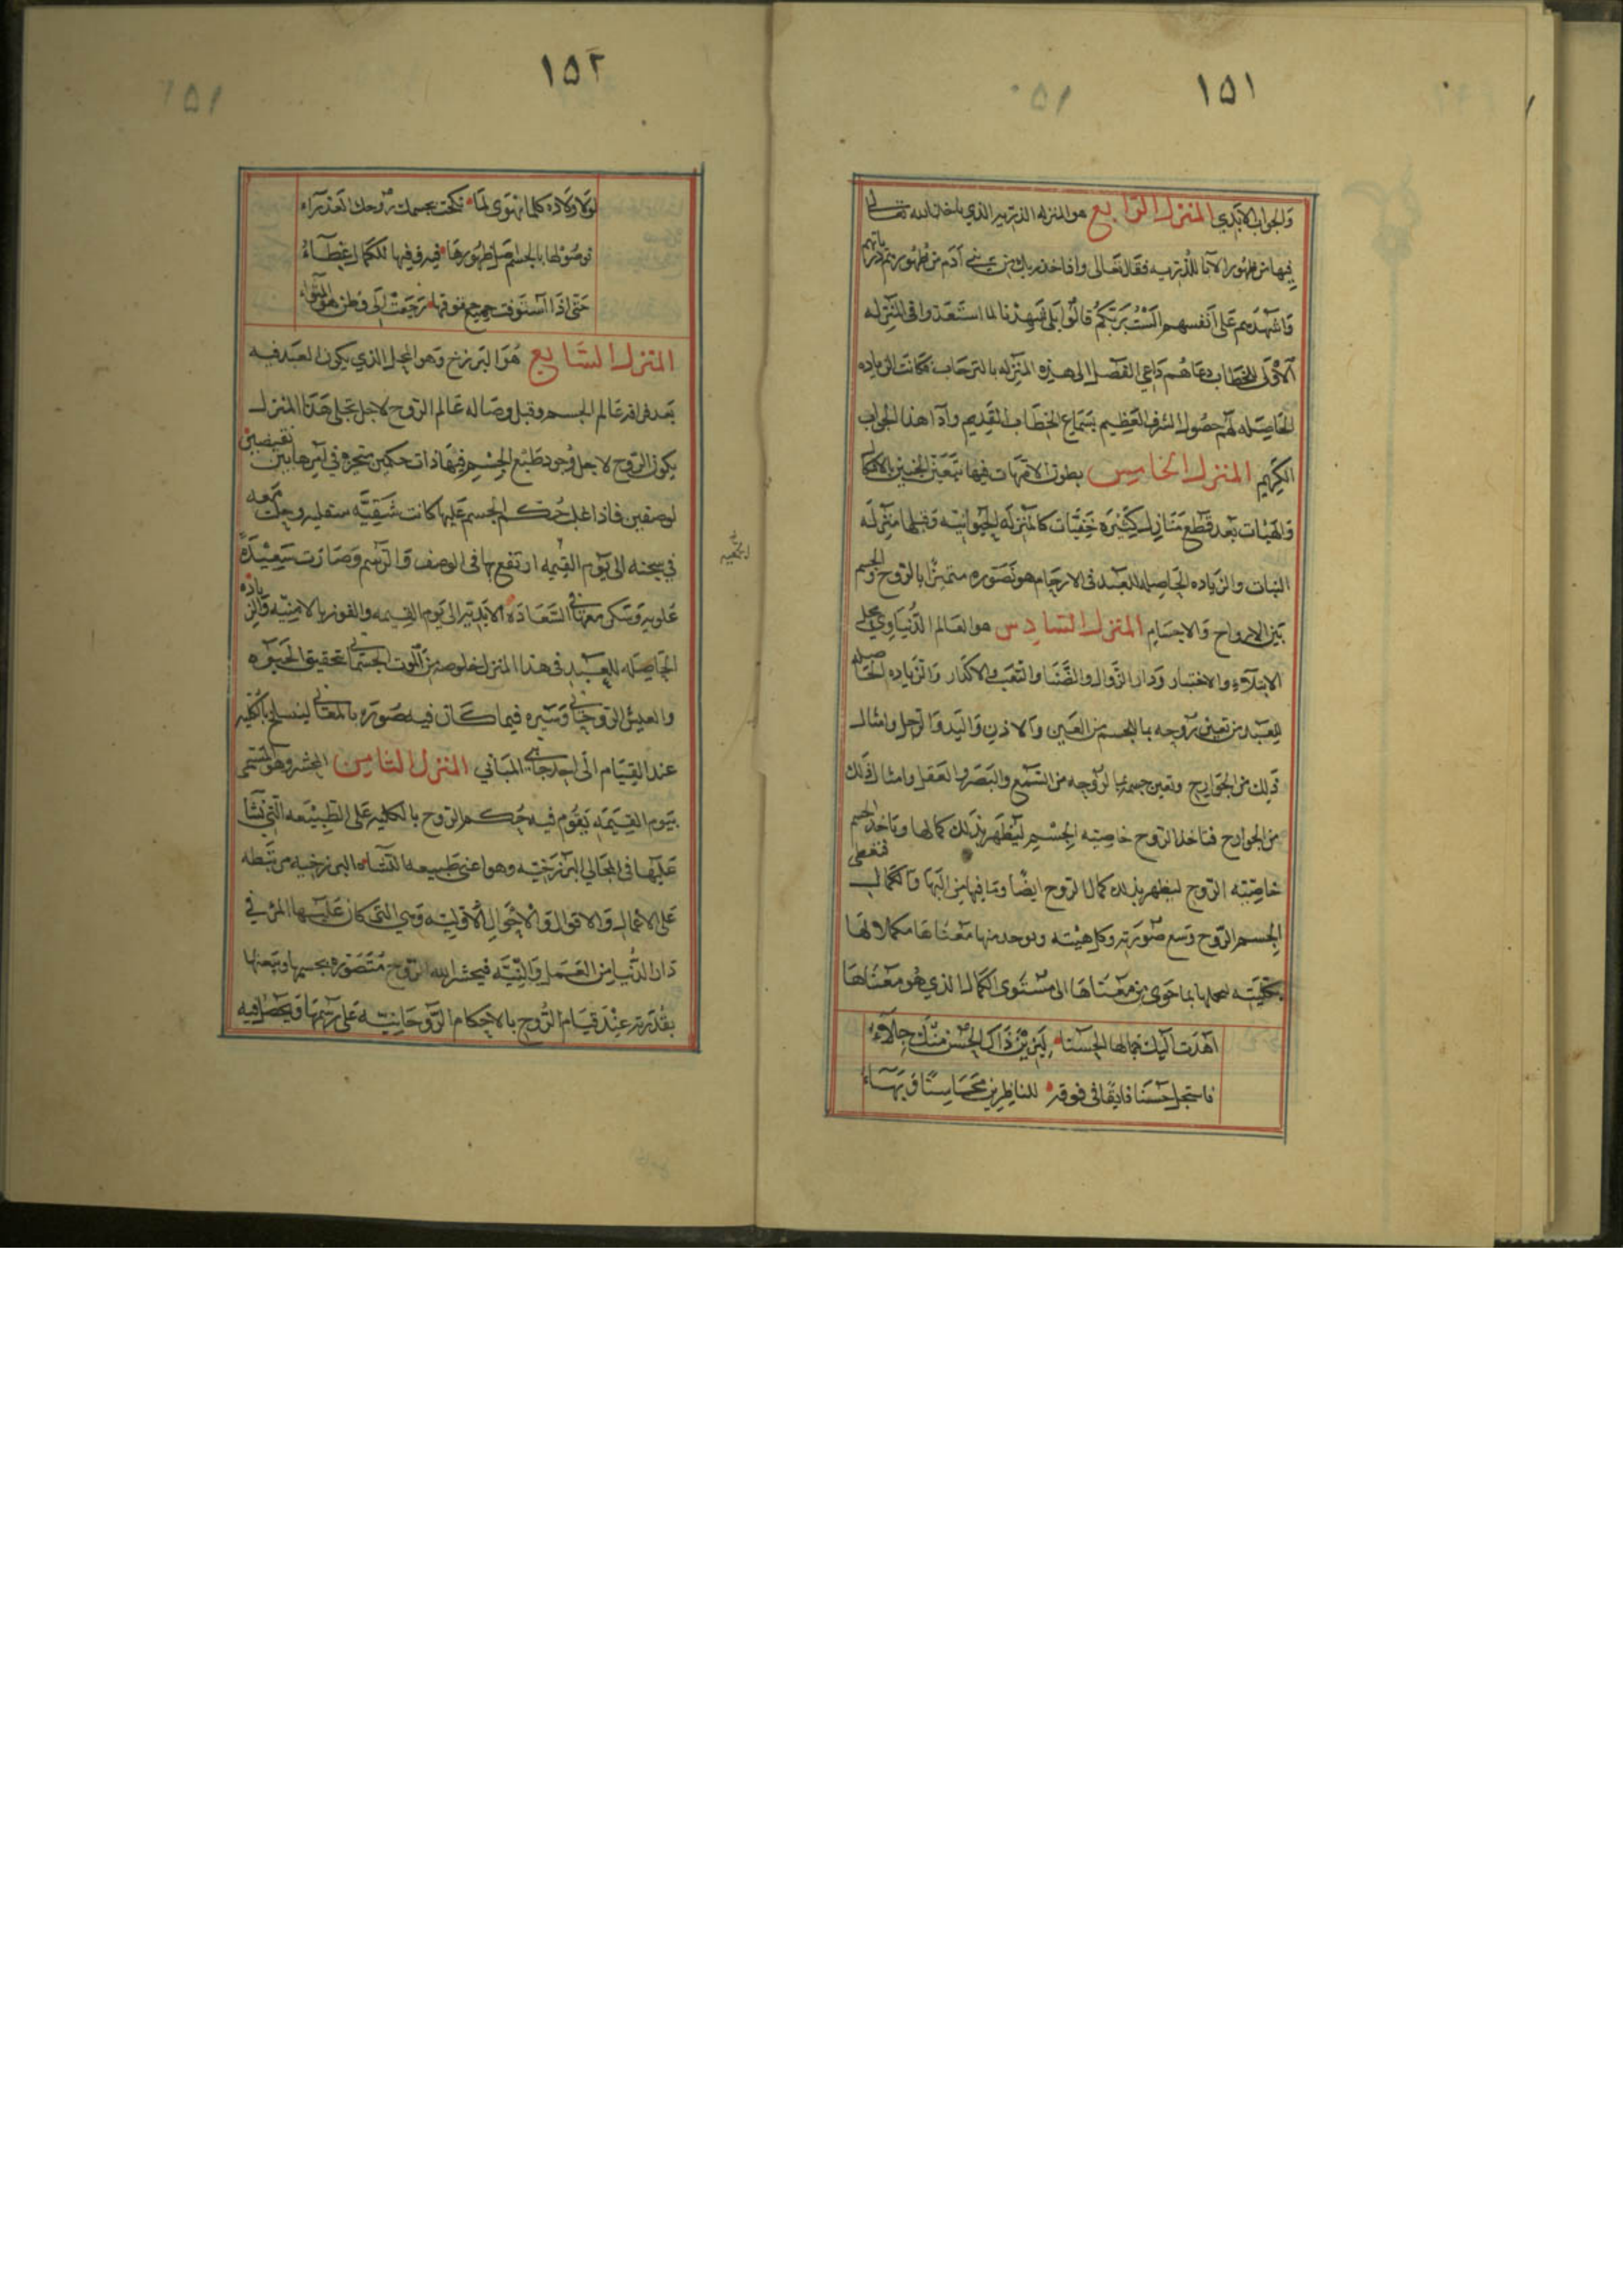 ١٥١
والجواب الابدي المنزل الرابع هو المنزله الذريه الذي ياخذ الله تعالى
فيها من ظهور الآباء الذريه فقال تعالى واذ اخذ ربك من بني آدم من ظهورهم ذرياتهم
واشهدهم على انفسهم الست بربكم قالوا بلى شهدنا لما استعدوا في المنزله
الاولى للخطاب دعاهم داعي الفضل الى هذه المنزله بالترحاب فكانت الزياده
الحاصله لهم حصول الشرف العظيم بسماع الخطاب القديم وآدا هذا الجواب
الكريم المنزل الخامس بطون الامهات فيها يتعين الجنين بالاشكال
والهيئات بعد قطع منازل كثيره خفيات كالمنزله الحيوانيه وقبلها منزله
النبات والزياده الحاصله للعبد في الارحام هو تصوره متميزا بالروح والجسم
بين الارواح والاجسام المنزل السادس هو العالم الدنياوي محل
الابتلاء والاختبار ودار الزوال والضنا والتعب والاكدار والزياده الحاصله
للعبد من تعين روحه بالجسم من العين والاذن واليد والرجل وامثال
ذلك من الجوارح وتعين جسمه لروحه من السمع والبصر والعقل وامثال ذلك
من الجوارح فتاخذ الروح خاصيته الجسم ليظهر بذلك كمالها وياخذ الجسم
خاصيته الروح ليظهر بذلك كمال الروح ايضا وما فيها من البها والكمال فتعطى
الجسم الروح وسع صورته وكل هيئته ويوخذ منها معناها مكملا لها
بكليته بما حوى من معناها الى مستوى الكمال الذي هو معناها
اهدت اليك جمالها الحسناء ليزين ذاك الحسن منك جلاء
فاستجل حسنا فايقا في فوقه للناظرين محاسنا وبهاء
١٥٢
لولا ولاده كلما تهوى لما نكحت بجسمك روحك العذراء
حتى اذا استوفت جميع حقوقها رجعت الى وطن هو
المنزل السابع هو البرزخ وهو المحل الذي يكون العبد فيه
بعد فراقه عالم الجسم وقبل وصاله عالم الروح لاجل تجلي هذا المنزل
يكون الروح لاجل وجود طبع الجسم فيها ذات حكمين متحيره في امرها بين نقيضين
لوصفين فاذا غلب حكم الجسم عليها كانت شقيه سفليه وحبت معه
في سجنه الى يوم القيمه ارتفع بها في الوصف والرسم وصارت سعيده
علويه وتسكن معها في السعاده الابديه الى يوم القيمه والفوز بالامنيه والزياده
الحاصله للعبد في هذا المنزل خلوصه من اللوث الجسماني تحقيق الحيوه
والعيش الروحاني وسيره فيما كان فيه صوره بالمعاني لينسلخ بالكليه
عند القيام الى المباني المنزل الثامن المحشر وهو المسمى
بيوم القيمه يقوم فيه حكم الروح بالكليه على الطبيعه التي نشا
عليها في المجالي البرزخيه وهو اعني طبيعه النشاه البرزخيه مرتبطه
على الاعمال والاقوال والاحوال الاوليه وهي التي كان عليها المرء في
دار الدنيا من العمل والنيه فيحشر الله الروح متصوره بجسمها ويبعثها
بقدرته عند قيام الروح بالاحكام الروحانيه على رسمها ويحصل فيه